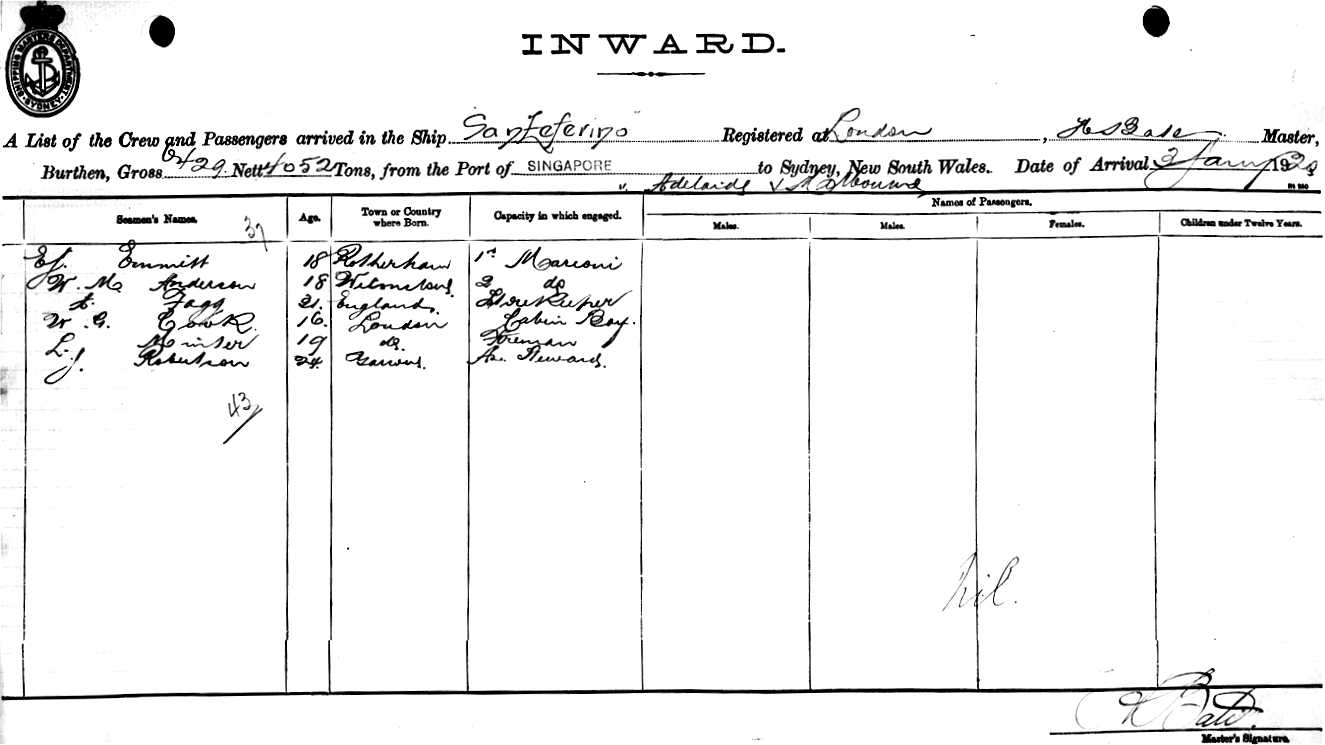 SHIPPING MASTER'S DEPARTMENT SYDNEY
INWARD.
A List of the Crew and Passengers arrived in the Ship San Zeferino Registered at London, Master,
Burthen, Gross 6429 Nett 4052 Tons, from the Port of SINGAPORE to Sydney, New South Wales. Date of Arrival 2 Jany 192
v. Adelaide & Melbourne
Seamen's Names. Age. Town or Country where Born. Capacity in which engaged. Names of Passengers.
Males. Males. Females. Children under Twelve Years.
37
E J. Emmitt 18 Rotherham 1st Marconi
W. M. Anderson 18 2 do
A. Fagg 21. England. Storekeeper
W. G. Cook. 16. London Cabin Boy.
L. Minter 19 do. Fireman
J. Robertson 24. Steward.
43
Nil.
Master's Signature.